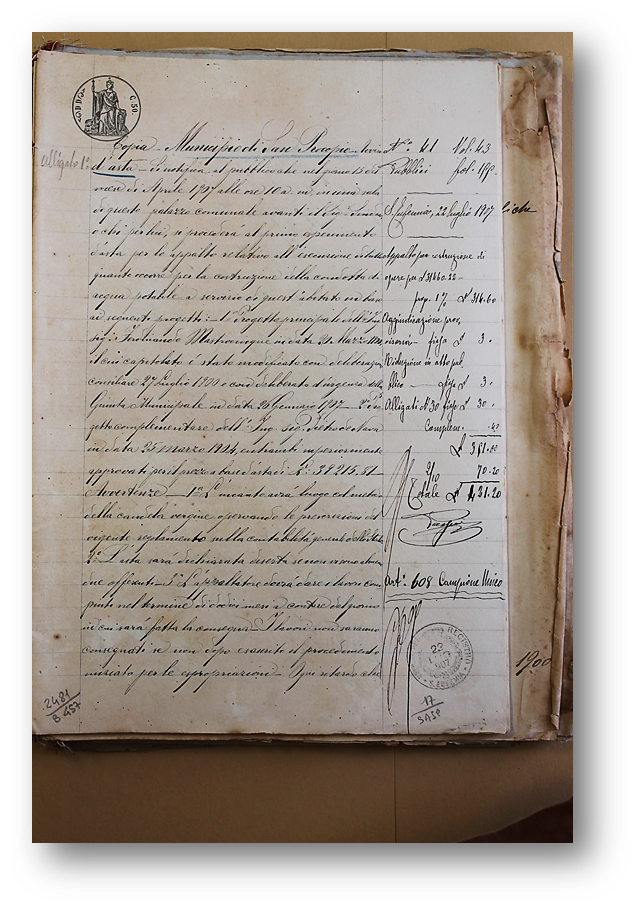 C. 50
Allegato 1º
Copia Municipio di San Procopio
d'asta - Si notifica al pubblico che nel giorno 15 del
mese di Aprile 1907 alle ore 10 a. m. in una sala
di questo palazzo comunale avanti il Sig. Sindaco
o chi per lui, si procederà al primo esperimento
d'asta per lo appalto relativo all'esecuzione di tutto
quanto occorre per la costruzione della condotta di
acqua potabile a servizio di quest'abitato in base
ai seguenti progetti: 1º Progetto principale dell'In
Ferdinando Mastrocinque in data 21 Marzo
il cui capitolato è stato modificato con deliberazione
consiliare 27 Luglio 1900 e con deliberato d'urgenza della
Giunta Municipale in data 26 Gennaio 1907 - 2º Pro
getto complementare dell'Ing. Pietro de Nava
in data 25 marzo 1904, entrambi superiormente
approvati per il prezzo a base d'asta di L. 38215.51
Avvertenze - 1º L'incanto avrà luogo col metodo
della candela vergine osservando le prescrizioni del
vigente regolamento sulla contabilità generale dello Stato
2º L'asta sarà dichiarata deserta se non vi sono almeno
due offerenti - 3º L'appaltatore dovrà dare i lavori com
piuti nel termine di dodici mesi a contare dal giorno
in cui sarà fatta la consegna - I lavori non saranno
consegnati se non dopo esaurito il procedimento
per le espropriazioni - Ogni ritardo che
Nº 41 Vol. 43
Pubblici fol. 190
S. Eufemia, 22 luglio 1907
Appalto per costruzione di
opere per £ 31660.22 -
prop. 1% £ 316.60
Aggiudicazione prov
visoria - fissa £ 3.
Riduzione in atto pub
blico - fissa £ 3.
Allegati Nº 30 fisso £ 30.
Complem. .40
£ 381.00
2/10 70.20
Totale £ 431.20
Art. 608 Campione Unico
REGISTRO
23
907
S. EUFEMIA
17
SASP
2481
B 457
liche
1900